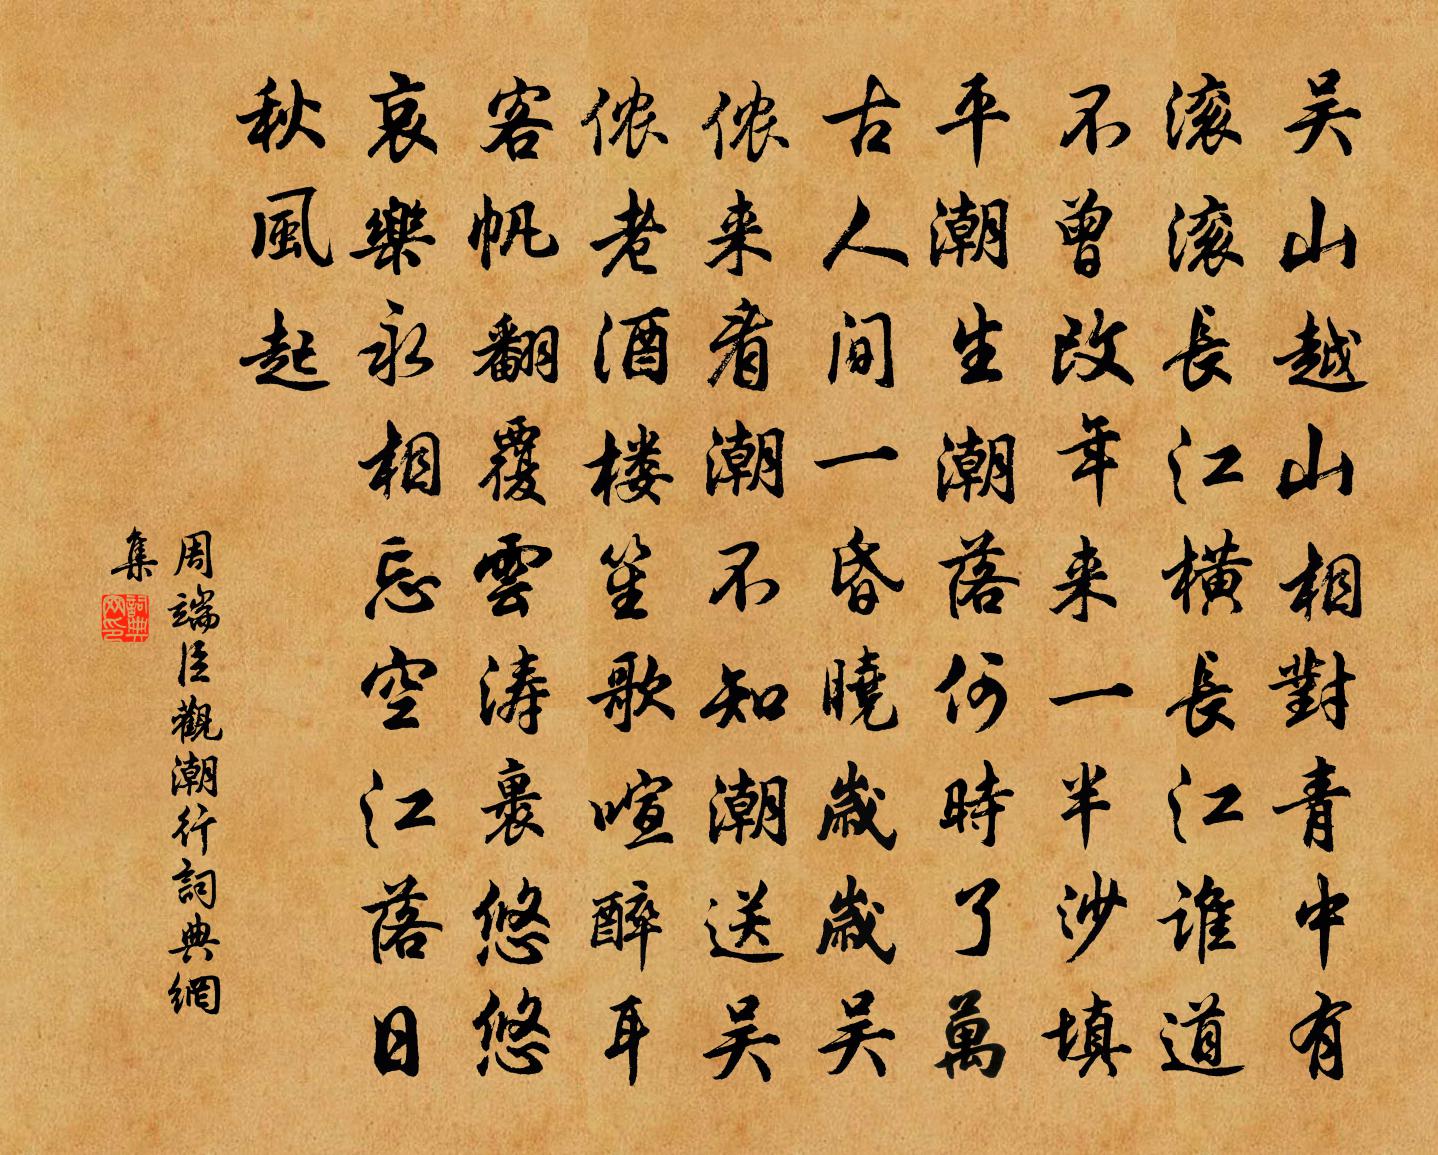 吴山越山相對青中有
滚滚長江橫長江誰道
不曾改年来一半沙填
平潮生潮落何時了萬
古人间一昏曉歲歲吴
侬来看潮不知潮送吴
侬老酒楼笙歌喧醉耳
客帆翻覆雲涛裹悠悠
哀樂永相忘空江落日
秋風起
周端臣觀潮行詞典網
集
詞典
网印